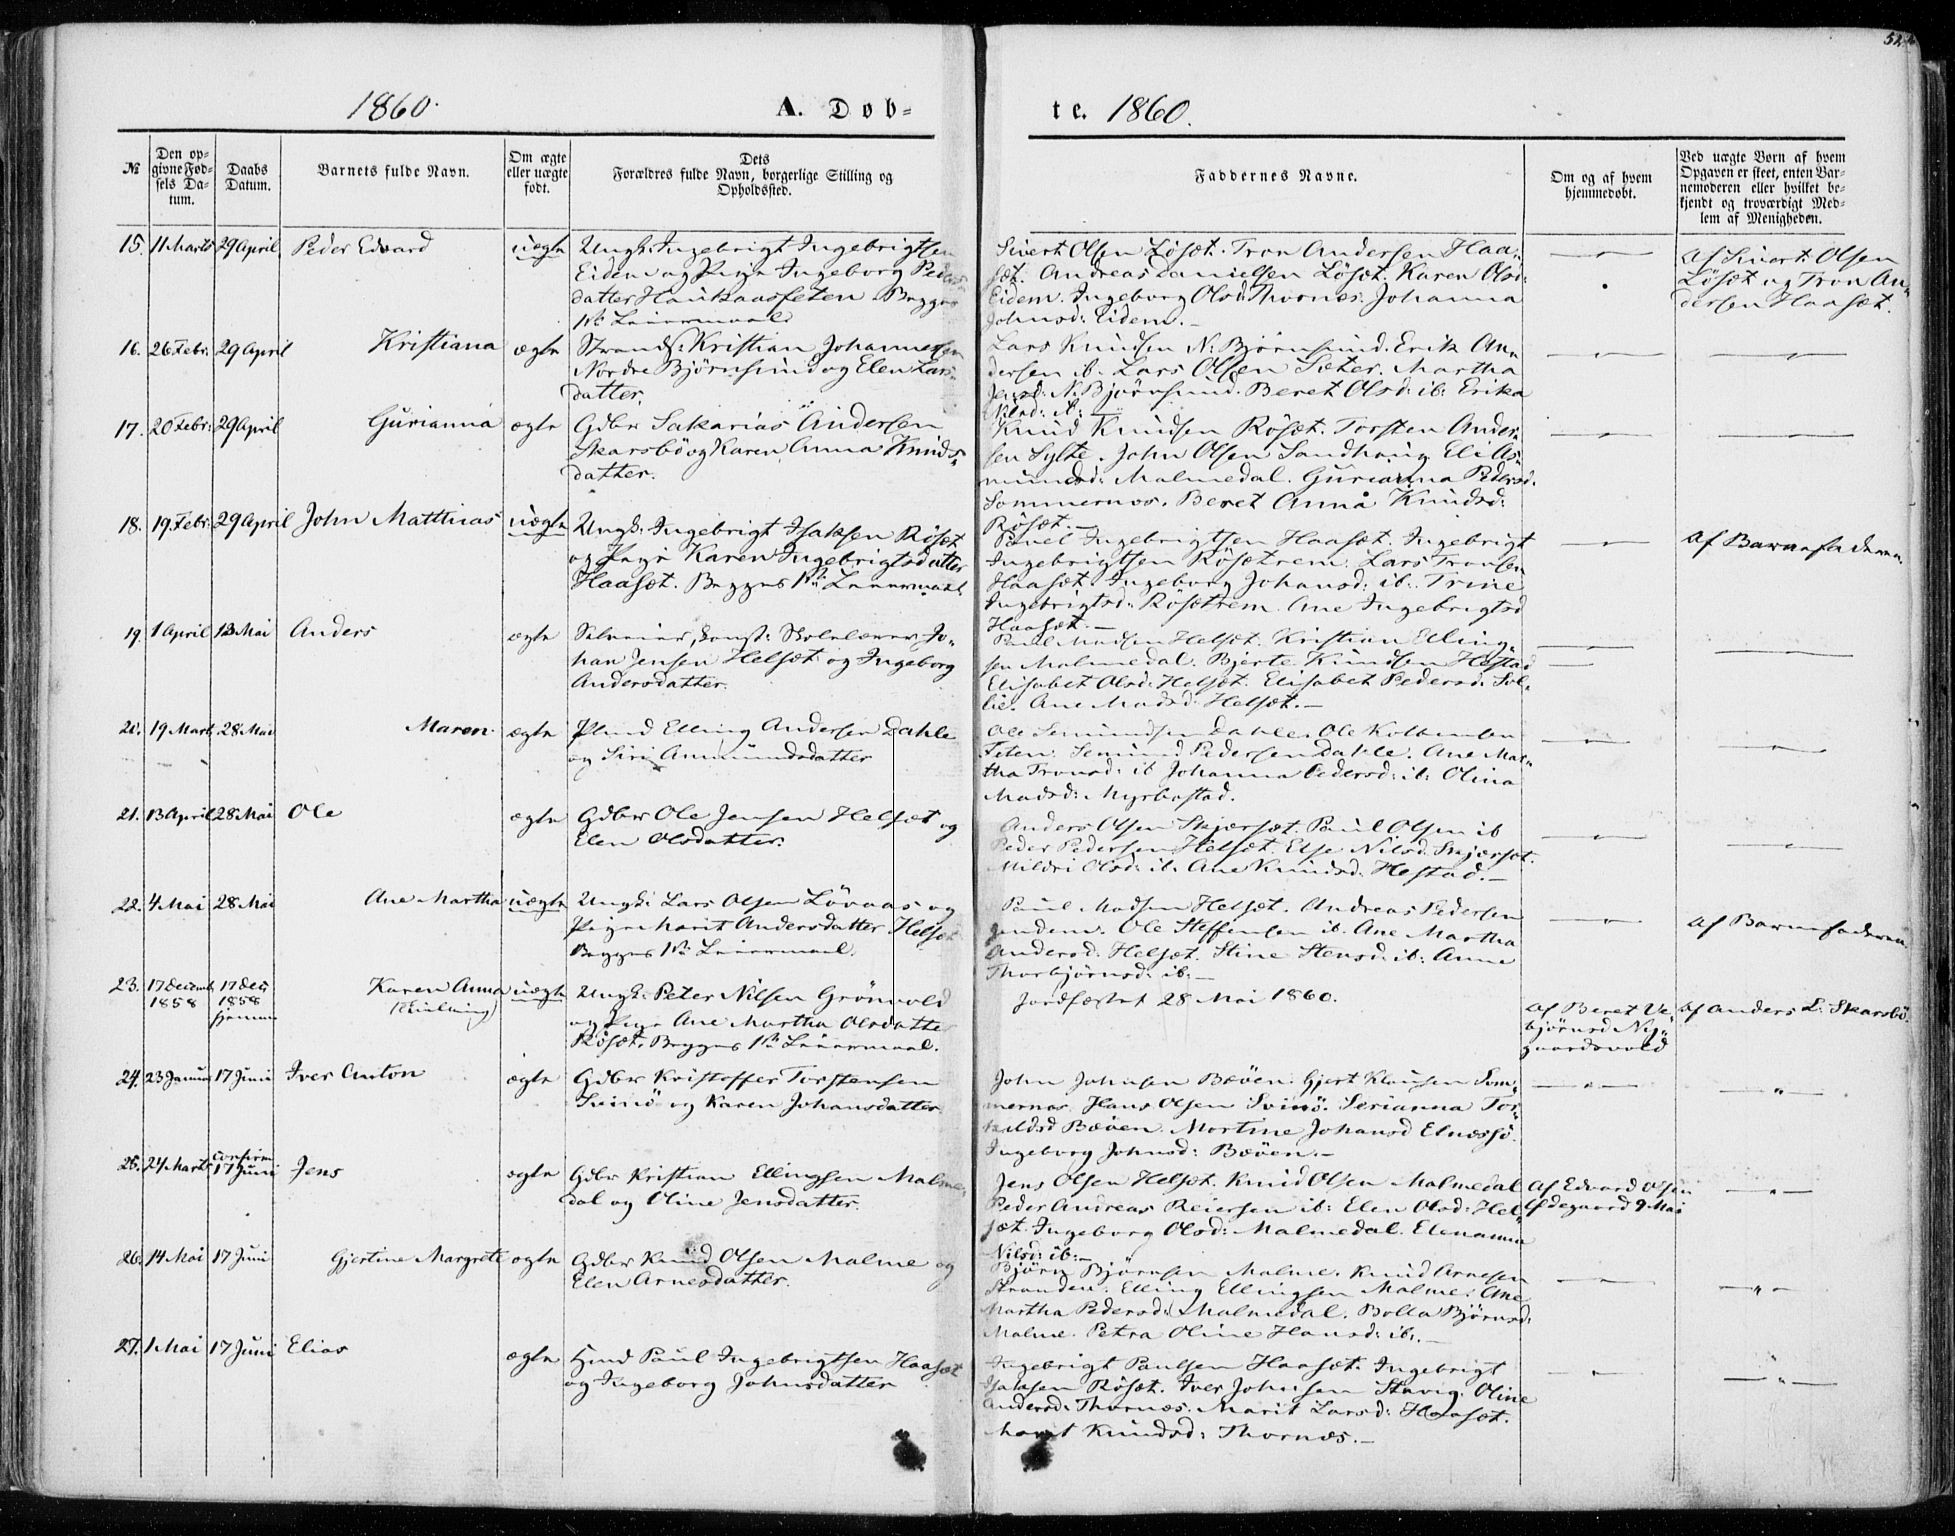 52
1860.
A. Døb-
te. 1860.
№
Den op-
givne Fød-
sels Da-
tum.
Daabs
Datum.
Barnets fulde Navn.
Om ægte
eller uægte
født.
Dets
Forældres fulde Navn, borgerlige Stilling og
Opholdssted.
Faddernes Navne.
Om og af hvem
hjemmedøbt.
Ved uægte Børn af hvem
Opgaven er skeet, enten Bar-
nemoderen eller hvilket be-
kjendt og troværdigt Med-
lem af Menigheden.
15. 11 Marts 29 April Peder Edvard uægte Ungk: Ingebrigt Ingebrigtsen
Eidem og Pige Ingeborg Peders
datter Haukaasfeten Begges
1ste Leiermaal
Sivert Olsen Løsæt. Tron Andersen Haa-
sæt. Andreas Danielsen Løsæt. Karen Olsd:
Eidem. Ingeborg Olsd: Thornæs. Johanna
Johnsd: Eidem.-
Af Sivert Olsen
Løsæt og Tron An-
dersen Haasæt.
16. 26 Febr: 29 April Kristiana ægte Strands: Kristian Johannesen
Nordre Bjørnsund og Elen Lars-
datter.
Lars Knudsen N: Bjørnsund. Erik An-
dersen ib. Lars Olsen Sæter. Martha
Jensd: N. Bjørnsund. Beret Olsd: ib: Erika
Nilsd: ib:-
17. 20 Febr: 29 April Gurianna ægte Gdbr Sakarias Andersen
Skarsbø og Karen Anna Knuds-
datter.
Knud Knudsen Røsæt. Torsten Ander-
sen Sylte. John Olsen Sandhaug. Eli As-
mundsd: Malmedal. Gurianna Pedersd:
Sommernæs. Beret Anna Knudsd:
Røsæt.-
18. 19 Febr: 29 April John Matthias uægte Ungk: Ingebrigt Isaksen Røsæt
og Pige Karen Ingebrigtsdatter
Haasæt. Begges 1ste Leiermaal.
Povel Ingebrigtsen Haasæt. Ingebrigt
Ingebrigtsen Røsætrem. Lars Tronsen
Haasæt. Ingeborg Johansd: ib: Trine
Ingebrigtsd: Røsætrem. Ane Ingebrigtsd
Haasæt.-
Af Barnefaderen.
19. 1 April 13 Mai Anders ægte Selveier, const: Skolelærer Jo-
han Jensen Helsæt og Ingeborg
Andersdatter.
Paul Madsen Helsæt. Kristian Elling-
sen Malmedal. Bjerte Knudsen Hestad
Elisabet Olsd: Helsæt. Elisabet Pedersd: Sol-
lie. Ane Madsd: Helsæt.-
20. 19 Mart 28 Mai Maren. ægte Plmd Elling Andersen Dahle
og Siri Ammundsdatter
Ole Semundsen Dahle. Ole Kolbensen
Feten. Semund Pedersen Dahle. Ane Mar-
tha Tronsd: ib Johanna Pedersd: ib: Olina
Madsd: Myrbostad.
21. 13 April 28 Mai Ole ægte Gdbr Ole Jensen Helsæt og
Elen Olsdatter.
Anders Olsen Skjærsæt. Paul Olsen ib
Peder Pedersen Helsæt. Else Nilsd. Skjærsæt.
Mildri Olsd: ib. Ane Knudsd: Hestad.-
22. 4 Mai 28 Mai Ane Martha uægte Ungk: Lars Olsen Løvaas og
Pige Marit Andersdatter Helsæt
Begges 1ste Leiermaal.
Paul Madsen Helsæt. Andreas Pedersen
Ole Steffensen ib. Ane Martha
Andersd: Helsæt. Stine Stensd: ib: Anne
Thorbjørnsd: ib:-
Af Barnefaderen
23. 17 Decemb 1858 17 Dec 1858 hjemme Karen Anna uægte Ungk: Peter Nilsen Grønvold
(Tvilling)
og Pige Ane Martha Olsdatter
Røsæt. Begges 1ste Leiermaal.
Jordfæstet 28 Mai 1860.
Af Beret Ve-
bjørnsd Ny-
gaardsvold
Af Anders L: Skarsbø.
24. 23 Januar 17 Juni Iver Anton ægte Gdbr Kristoffer Torstensen
Svinø og Karen Johansdatter
John Johnsen Bøøen. Gjert Klausen Som-
mernæs. Hans Olsen Svinø. Serianna Tor-
kildsd Bøøen. Martine Johansd Elnæssø.
Ingeborg Johnsd: Bøøen.-
25. 24 Marts Confirm. 17 Juni Jens ægte Gdbr Kristian Ellingsen Malme-
dal og Oline Jensdatter.
Jens Olsen Helsæt. Knud Olsen Malmedal
Peder Andreas Reiersen ib: Elen Olsd: Hel-
sæt. Ingeborg Olsd: Malmedal. Elenanna
Nilsd: ib:-
Af Edvard Olsen
Ødegaard 9 Mai
26. 14 Mai 17 Juni Gjertine Margrete ægte Gdbr Knud Olsen Malme og
Elen Arnesdatter.
Bjørn Bjørnsen Malme. Knud Arnesen
Stranden. Elling Ellingsen Malme. Ane
Martha Pedersd: Malmedal. Bolla Bjørnsd:
Malme. Petra Oline Hansd: ib:-
27. 1 Mai 17 Juni Elias ægte Hmd Paul Ingebrigtsen Haasæt
og Ingeborg Johnsdatter
Ingebrigt Paulsen Haasæt. Ingebrigt
Isaksen Røsæt. Iver Johnsen Stavig. Oline
Andersd: Thornæs. Marit Larsd: Haasæt.
Marit Knudsd: Thornæs.-